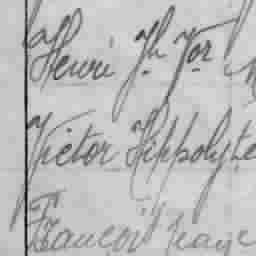 Henri Jh Vor
Victor Hippolyte
François